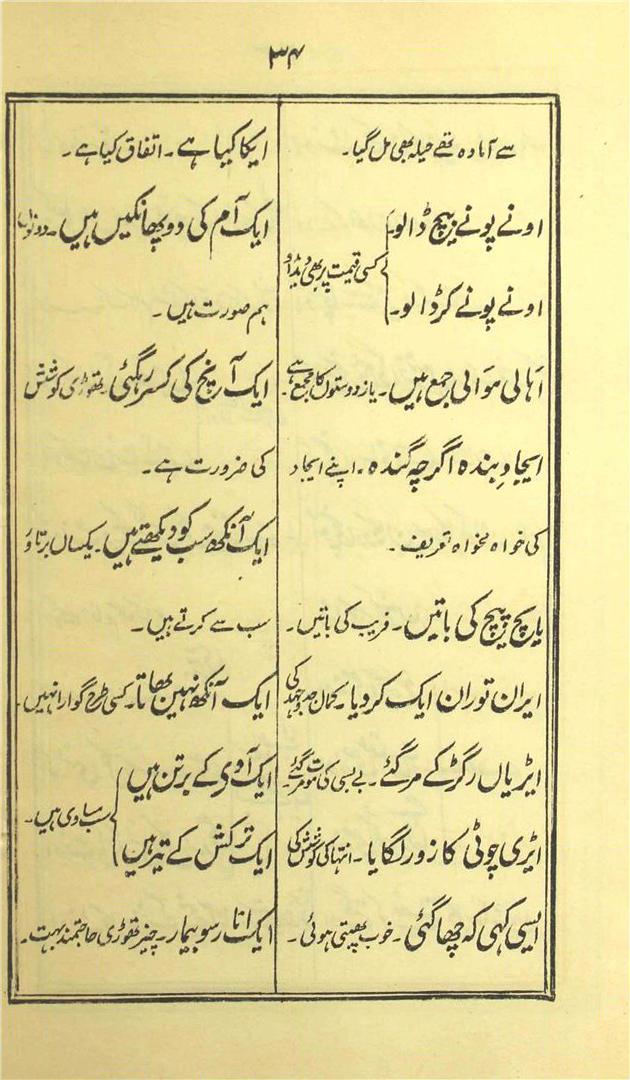 ۳۴
سے آمادہ تھے حیلہ بھی مل گیا۔
اونے پونے بیچ ڈالو۔
کسی قیمت پر بھی دیدو
اونے پونے کر ڈالو۔
اَہالی مَوالی جمع ہیں۔ یار دوستوں کا مجمع ہے۔
ایجادِ بندہ اگرچہ گندہ۔ اپنے ایجاد
کی خواہ مخواہ تعریف۔
یا پیچ کی باتیں۔ فریب کی باتیں۔
ایران توران ایک کر دیا۔ کمال جد وجہد کی
ایڑیاں رگڑ کے مر گئے۔ بے بسی کی موت مر گئے۔
ایڑی چوٹی کا زور لگایا۔ انتہا کی کوشش کی
ایسی کہی کہ چھا گئی۔ خوب پھبتی ہوئی۔
ایکا کیا ہے۔ اتفاق کیا ہے۔
ایک آم کی دو پھانکیں ہیں۔ دونوں
ہم صورت ہیں۔
ایک آنچ کی کسر رہگئی۔ تھوڑی کوشش
کی ضرورت ہے۔
ایک آنکھ سب کو دیکھتے ہیں۔ یکساں برتاؤ
سب سے کرتے ہیں۔
ایک آنکھ نہیں بھاتا۔ کسی طرح گوارا نہیں۔
ایک آوی کے برتن ہیں
سب مساوی ہیں۔
ایک ترکش کے تیر ہیں
ایک انار سو بیمار۔ چیز تھوڑی حاجتمند بہت۔